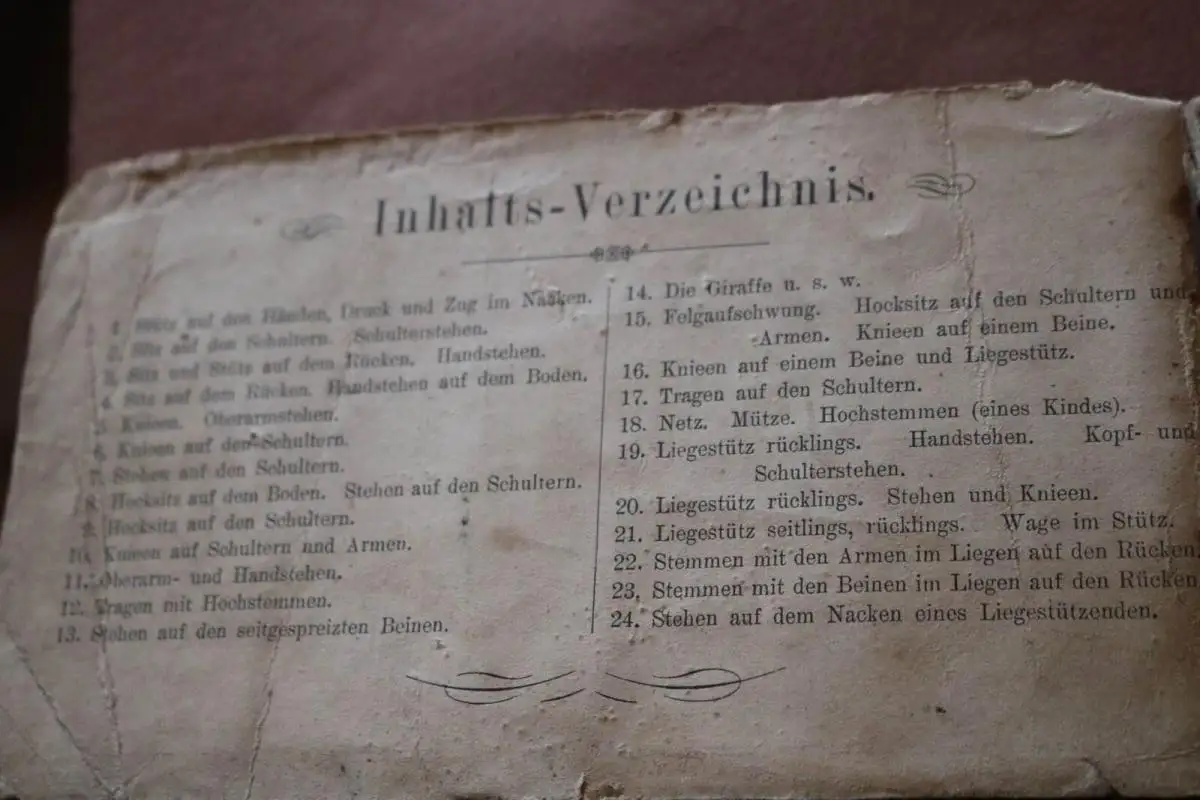 Inhalts-Verzeichnis.
1. Stütz auf den Händen, Druck und Zug im Nacken.
2. Sitz auf den Schultern. Schulterstehen.
3. Sitz und Stütz auf dem Rücken. Handstehen.
4. Sitz auf dem Rücken. Handstehen auf dem Boden.
5. Knieen. Oberarmstehen.
6. Knieen auf den Schultern.
7. Stehen auf den Schultern.
8. Hocksitz auf dem Boden. Stehen auf den Schultern.
9. Hocksitz auf den Schultern.
10. Knieen auf Schultern und Armen.
11. Oberarm- und Handstehen.
12. Tragen mit Hochstemmen.
13. Stehen auf den seitgespreizten Beinen.
14. Die Giraffe u. s. w.
15. Felgaufschwung. Hocksitz auf den Schultern und
Armen. Knieen auf einem Beine.
16. Knieen auf einem Beine und Liegestütz.
17. Tragen auf den Schultern.
18. Netz. Mütze. Hochstemmen (eines Kindes).
19. Liegestütz rücklings. Handstehen. Kopf- und
Schulterstehen.
20. Liegestütz rücklings. Stehen und Knieen.
21. Liegestütz seitlings, rücklings. Wage im Stütz.
22. Stemmen mit den Armen im Liegen auf den Rücken
23. Stemmen mit den Beinen im Liegen auf den Rücken
24. Stehen auf dem Nacken eines Liegestützenden.